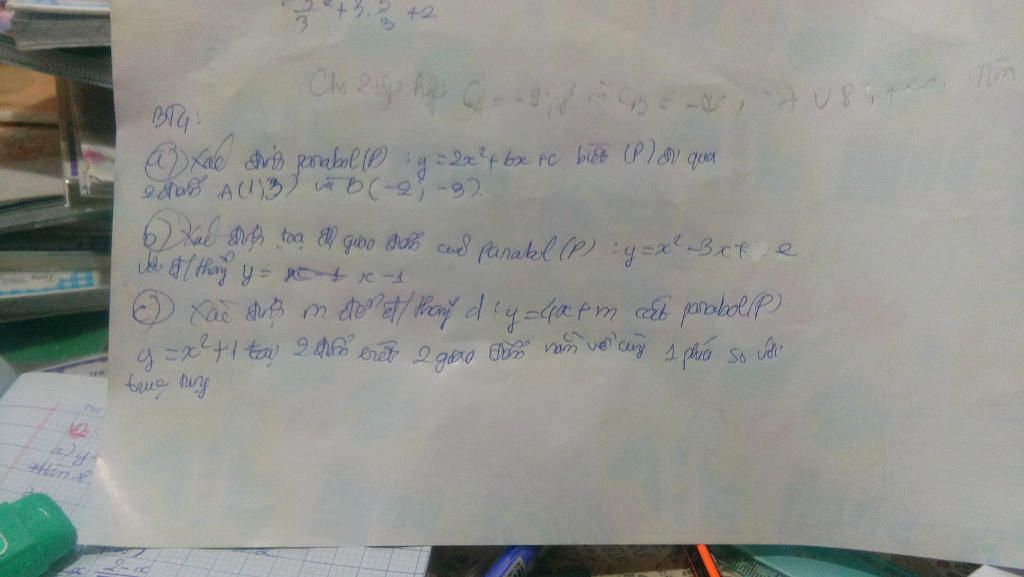 2/3 + 3. 2/3 + 2
Cho 2 tập hợp C_A = -9; 8 và C_B = -∞; -7 ∪ 8; +∞. Tìm
BT4:
a) Xác định parabol (P) : y = 2x² + bx + c biết (P) đi qua
2 điểm A(1,3) và B(-2; -9).
b) Xác định toạ độ giao điểm của parabol (P) : y = x² - 3x + 2
với đ/thẳng y = x - 1
c) Xác định m để đ/thẳng d : y = 4x + m cắt parabol (P)
y = x² + 1 tại 2 điểm biết 2 giao điểm nằm về cùng 1 phía so với
trục tung
a) y =